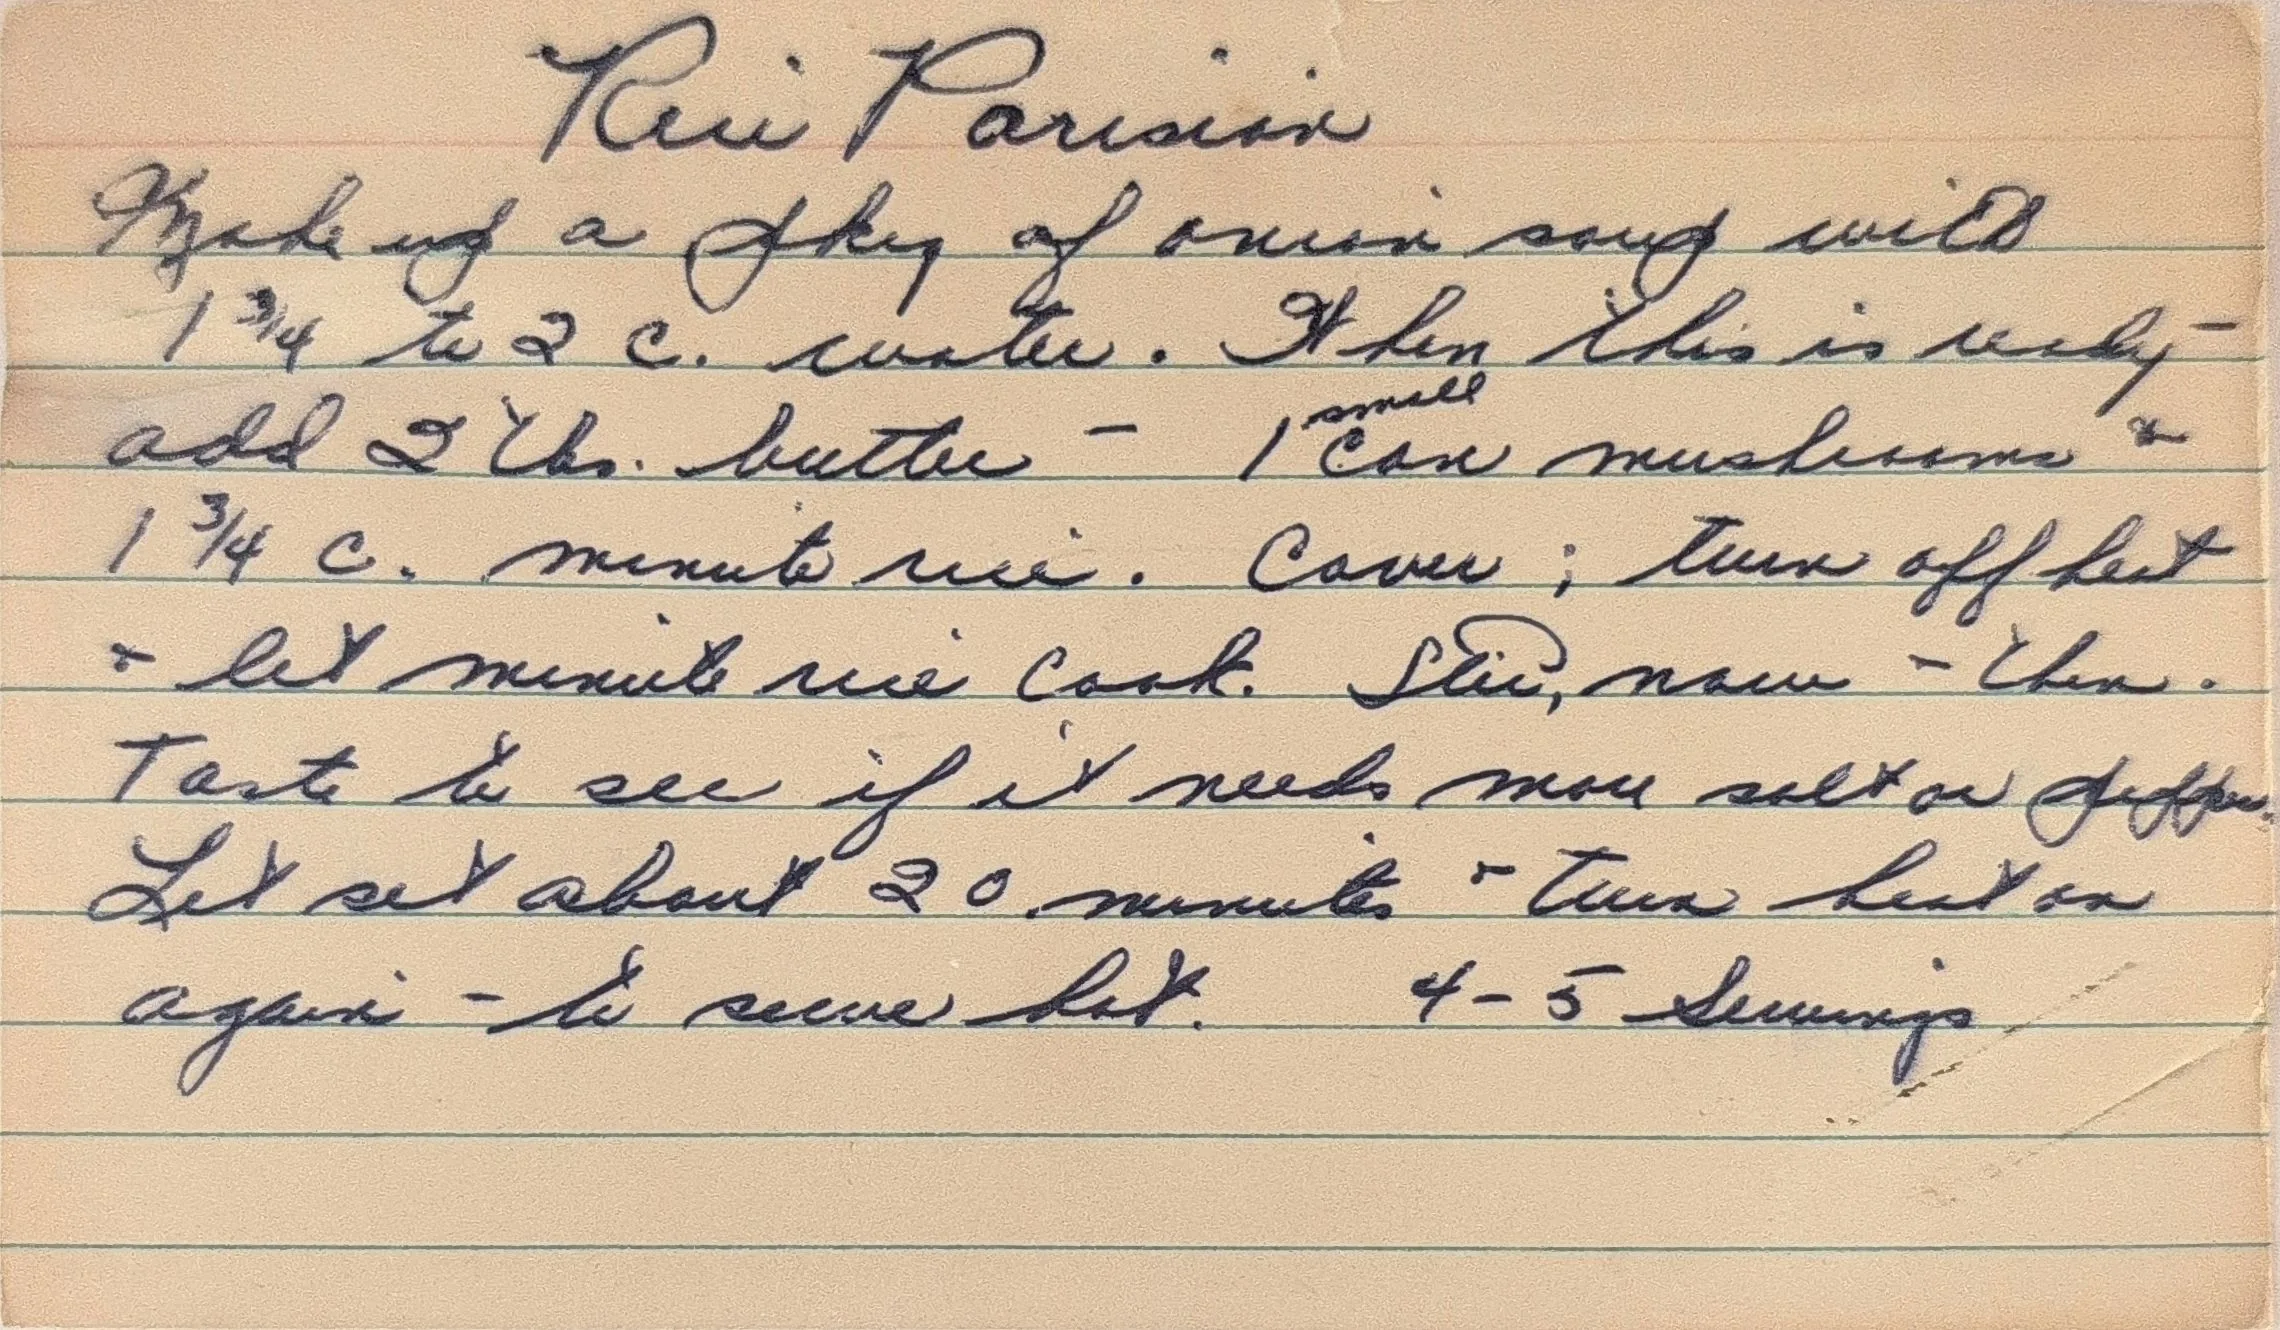 Rice Parisian
Make up a pkg of onion soup with
1 3/4 to 2 c. water. When this is ready -
add 2 tbs. butter - 1 small can mushrooms &
1 3/4 c. minute rice. Cover ; turn off heat
& let minute rice cook. Stir, now - then.
Taste to see if it needs more salt or pepper.
Let set about 20 minutes & turn heat on
again - to serve hot. 4-5 Servings